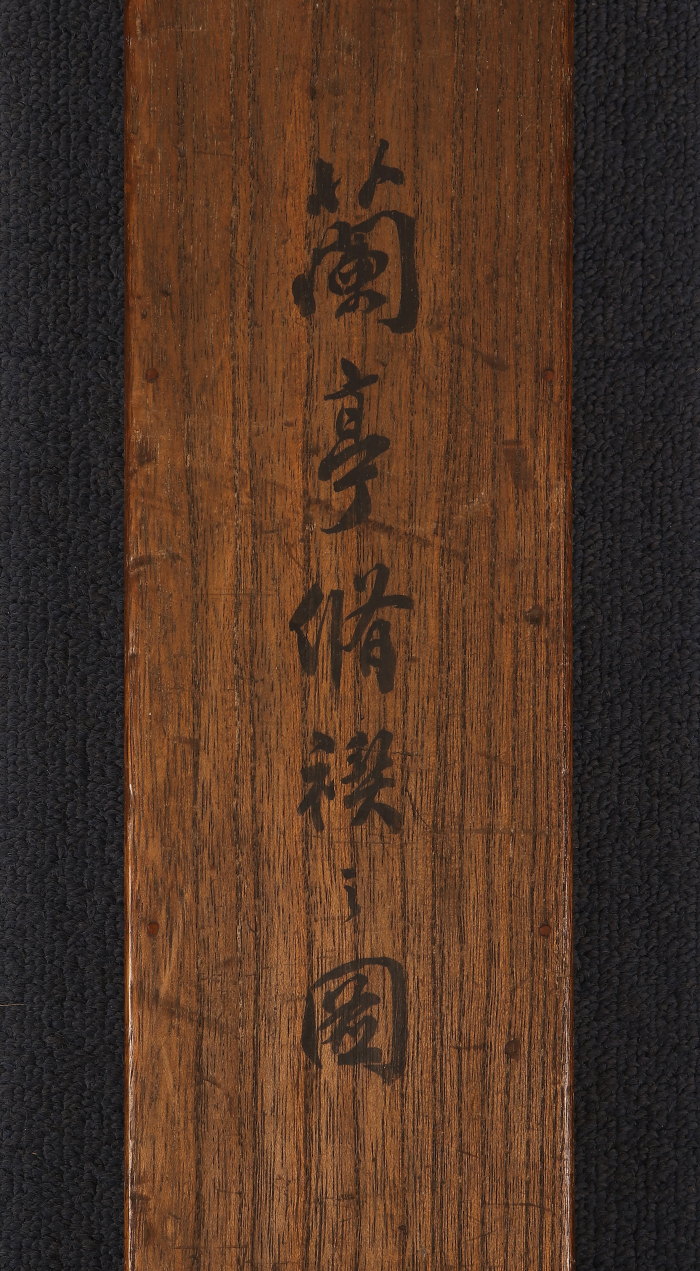 蘭亭脩禊之圖